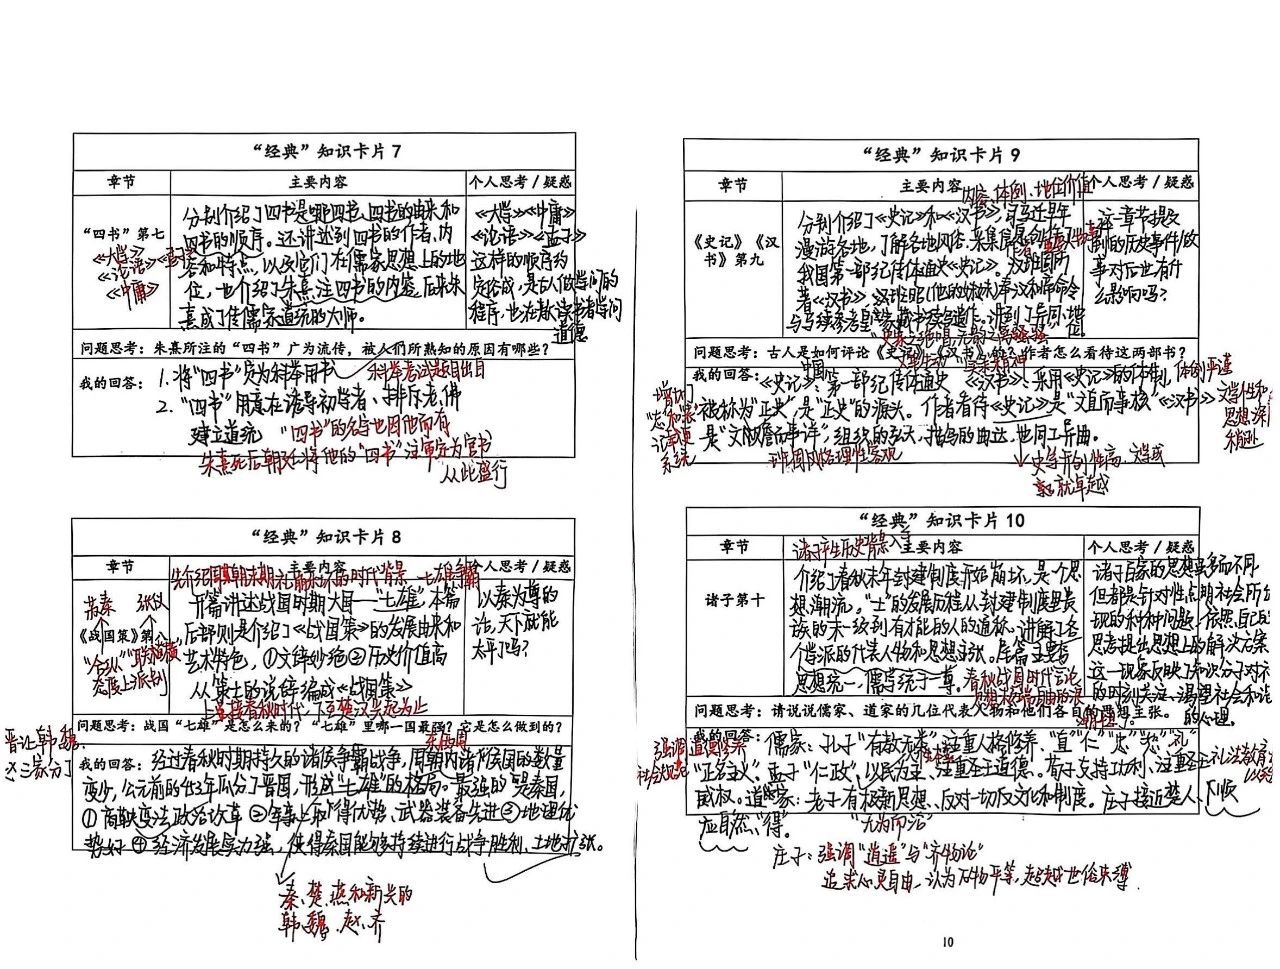 “经典”知识卡片 7
章节 主要内容 个人思考/疑惑
“四书”第七
《大学》《孟子》
《论语》
《中庸》
分别介绍了四书是哪四书、四书的由来和
四书的顺序。还讲述到四书的作者、内
容和特点，以及它们在儒家思想上的地
位，也介绍了朱熹注四书的内容，后来朱
熹成了传儒家道统的大师。
《大学》《中庸》
《论语》《孟子》
这样的顺序约
定俗成，是古人做学问的
程序，也在教读书者学问
道德
问题思考：朱熹所注的“四书”广为流传，被人们所熟知的原因有哪些？
我的回答：1.将“四书”定为科举用书 科举考试题目出自
2.“四书”用意在诱导初学者、排斥老、佛
建立道统 “四书”的名字也因他而有
朱熹死后朝廷将他的“四书”注审定为官书
从此盛行
“经典”知识卡片 8
章节 主要内容 个人思考/疑惑
苏秦 张仪
《战国策》第八
“合纵”“联横”
先介绍周朝末期礼崩乐坏的时代背景
开篇讲述战国时期大国——“七雄”，本篇
后部则是介绍了《战国策》的发展由来和
艺术特色，①文辞妙绝②历史价值高
从策士的说辞编成《战国策》
上接春秋时代，下至楚汉兴起为止
以秦为尊的
论，天下就能
太平了吗？
问题思考：战国“七雄”是怎么来的？“七雄”里哪一国最强？它是怎么做到的？
我的回答：经过春秋时期持久的诸侯争霸战争，周朝内诸侯国的数量
变少，公元前403年瓜分了晋国，形成“七雄”的格局。最强的是秦国，
①商鞅变法政治改革②军事上取得优势、武器装备先进③地理优
势好④经济发展实力强，使得秦国能够持续进行战争胜利、土地扩张。
晋让韩、魏、
赵三家分了
秦、楚、燕和新兴的
韩、魏、赵、齐
“经典”知识卡片 9
章节 主要内容 个人思考/疑惑
内容、体例、地位价值
《史记》《汉
书》第九
分别介绍了《史记》和《汉书》，司马迁早年
漫游各地，了解各地风俗，采集传闻，创作
我国第一部纪传体通史《史记》。汉班固所
著《汉书》，汉班昭（他的妹妹）奉汉和帝命令
与马续参考皇家藏书续写遗作。讲到了异同、地位
这一章节提及
到的历史事件/故
事对后世有什
么影响吗？
问题思考：古人是如何评论《史记》《汉书》的？作者怎么看待这两部书？
我的回答：《史记》：第一部纪传体通史 《汉书》：采用《史记》的体例，体例严谨
被称为“正史”，是“正史”的源头。作者看待《史记》是“文直而事核”《汉书》
是“文赡而事详”，组织的弘大，描写的曲达，也同工异曲。
班固风格理性客观
史学开创性高，文学成
就卓越
文学性和
思想深度
稍逊
“经典”知识卡片 10
章节 主要内容 个人思考/疑惑
诸子产生历史背景
诸子第十
介绍了春秋末年封建制度开始崩坏，是个思
想潮流。“士”的发展历程从封建制度里贵
族的末一级到有才能的人的通称、讲解了各
个学派的代表人物和思想主张。
思想统一，儒学统于一尊。春秋战国时代言论
思想极端自由的表
诸子百家的思想虽多而不同，
但都是针对性点明社会所出
现的种种问题，依照自己的
思考提出思想上的解决方案
这一现象反映了知识分子对社会
的时刻关注、渴望社会和谐
的心理。
问题思考：请说说儒家、道家的几位代表人物和他们各自的思想主张。
我的回答：儒家：孔子“有教无类”、注重人格修养、“直”“仁”“忠”“恕”“礼”
“正名主义”。孟子“仁政”，以民为主、注重圣王道德。荀子支持功利、注重圣王礼法教育
威权。道家：老子有极新思想、反对一切反文化和制度。庄子接近楚人、顺
应自然、“得”。 “无为而治”
强调道德修养
庄子：强调“道遥”与“齐物论”
追求心灵自由，认为万物平等，超越世俗束缚
10